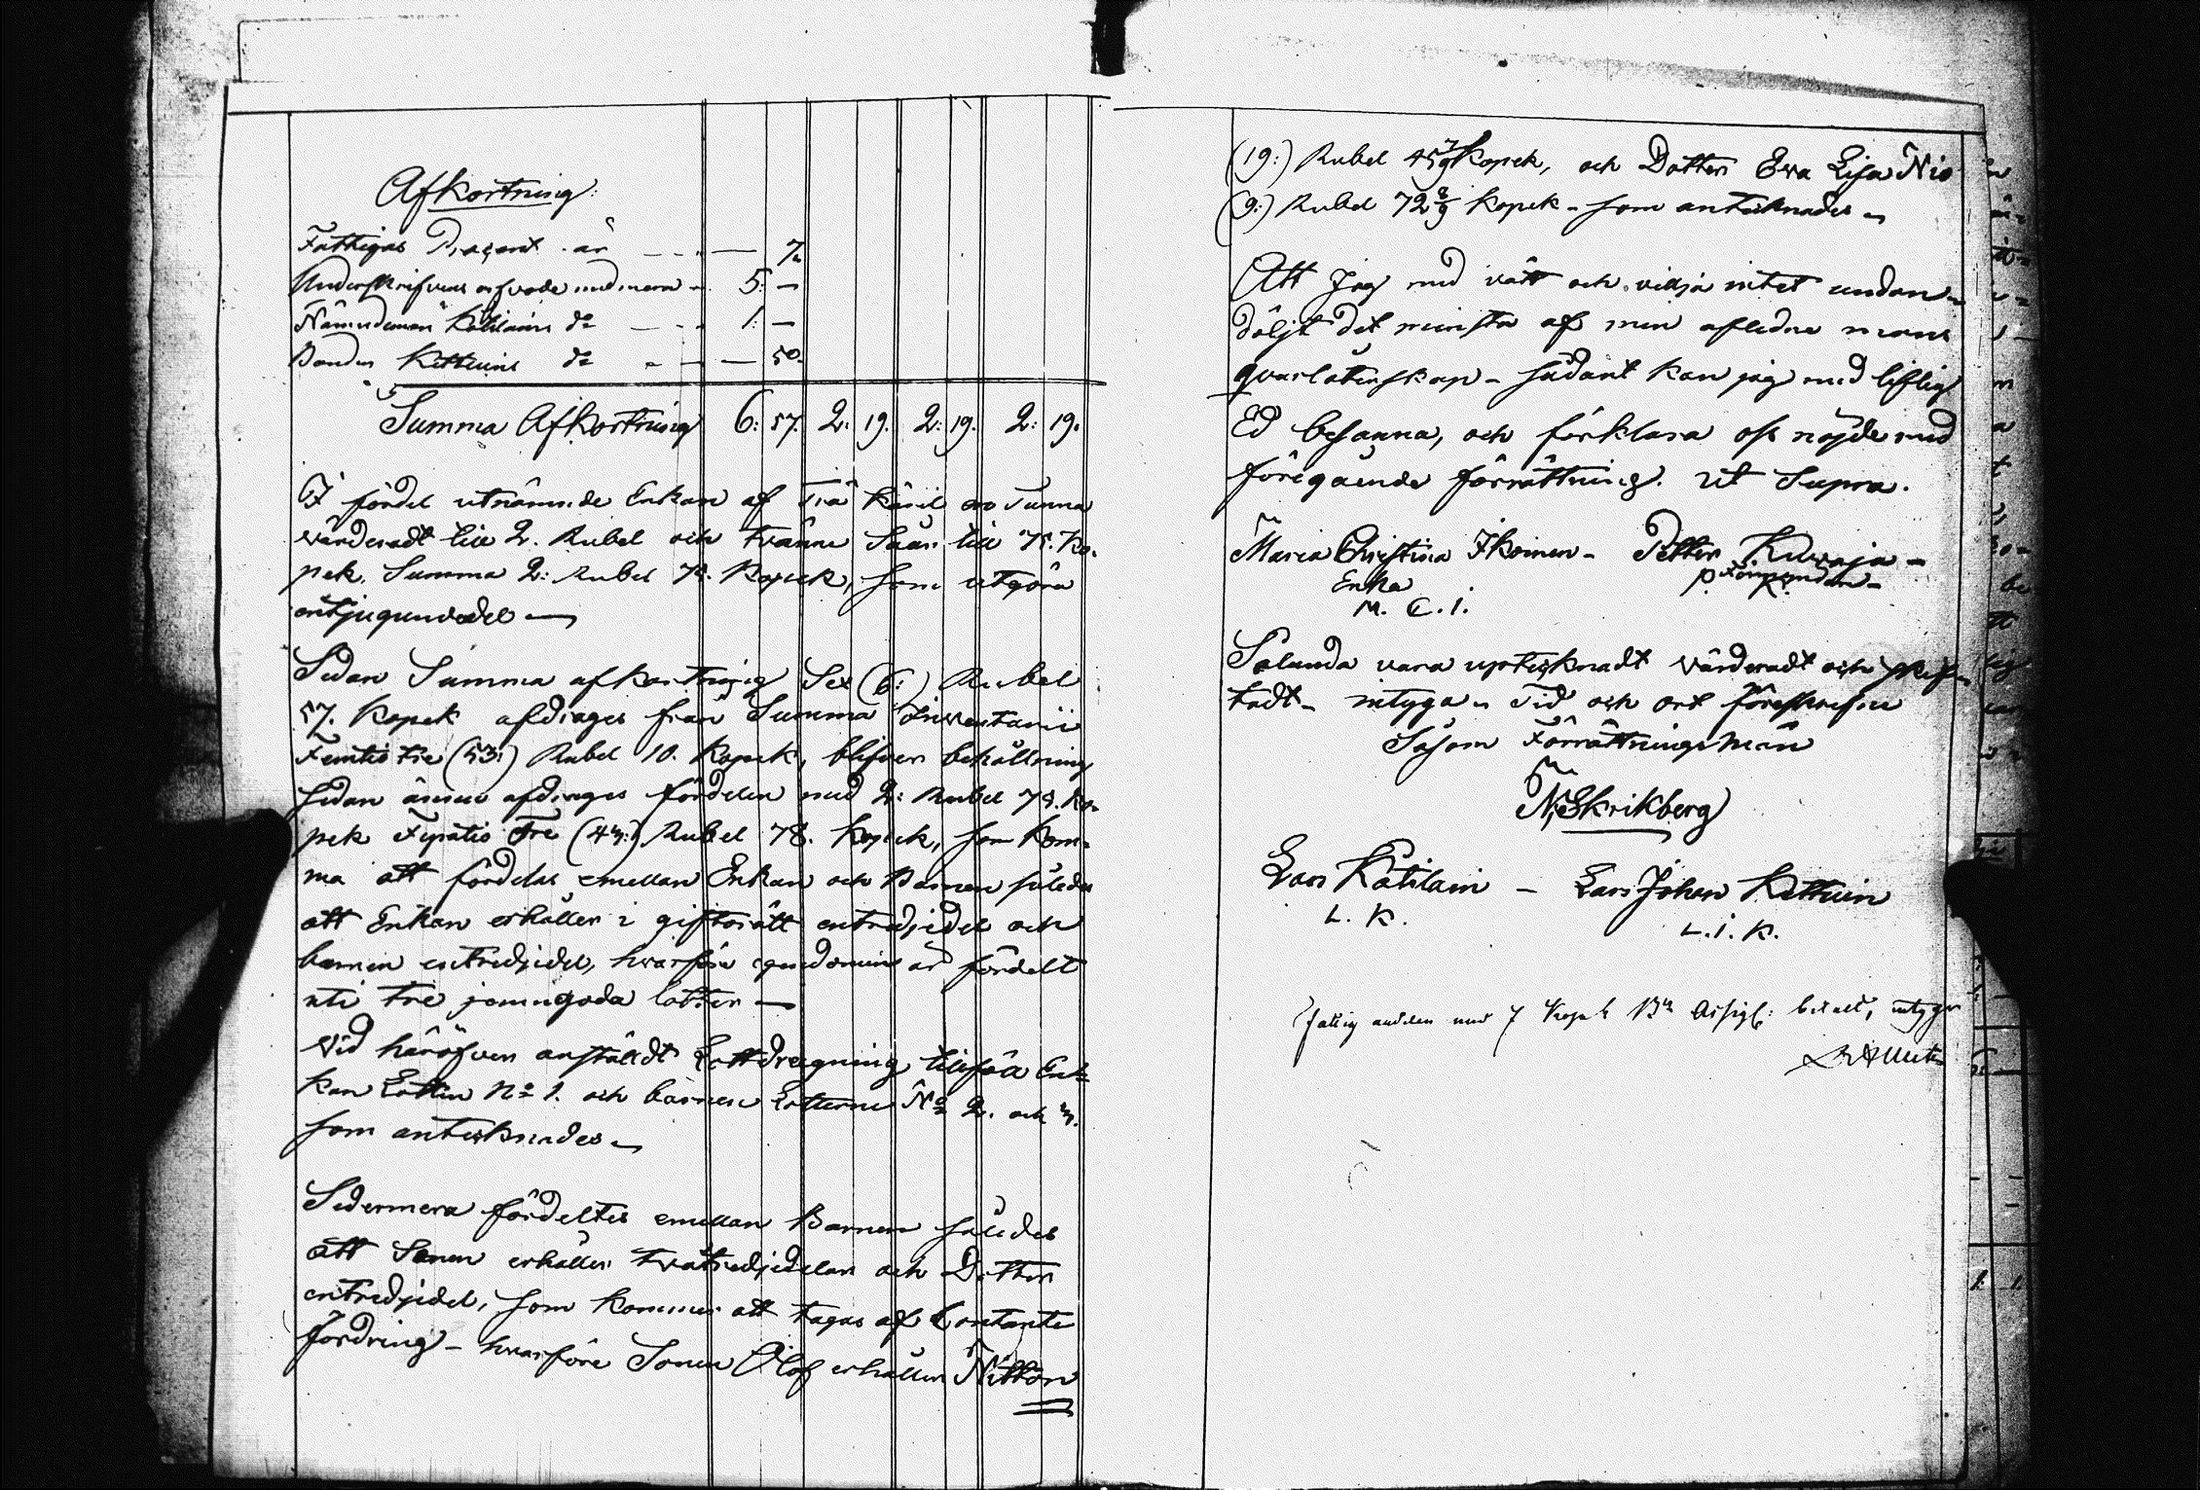 Afkortning:
Fattigas Procent är - - " — 7.
Underskrifvens arfvode med mera - 5: —
Nämndeman Kätilains do — - - 1: —
Bonden Kettuins do - - — 50.
Summa Afkortning 6: 57. 2: 19. 2: 19. 2: 19.
I fördel utnämnde Enkan af Trä Käril en Tunna
värderadt till 2. Rubel och tvänne Såar till 75. Ko-
pek. Summa 2: Rubel 75. Kopek, som utgöra
entjugundedel —
Sedan Summa afkortning Sex (6:) Rubel
57. Kopek afdrages från Summa Inventarii
Femtio tre (53:) Rubel 10. Kopek, blifver behållning
sedan ännu afdrages fördelen med 2: Rubel 75. Ko-
pek Fyratio Tre (43:) Rubel 78. Kopek, som kom-
ma att fördelas emellan Enkan och Barnen således
att Enkan erhåller i giftorätt entredjedel och
barnen entredjedel, hvarföre egendomen är fördelt
uti Tre jemngoda lotter —
Vid häröfver anstäldt Lottdragning tillföll En-
kan Lotten No 1. och barnen Lotterne No 2. och 3.
som antecknades —
Sedermera fördeltes emellan Barnen således
att Sonen erhåller tvåtredjedelar och Dottern
entredjedel, som kommer att tagas af Contante
fordring - hvarföre Sonen Olof erhåller Nitton
(19:) Rubel 45 7/9 Kopek, och Dotter Eva Lisa Nio
(9:) Rubel 72 8/9 Kopek - som antecknades -
Att Jag med vätt och vilja intet undan-
döljt det minsta af min aflidne mans
qvarlåtenskap - sådant kan jag med liflig
Ed besanna, och förklara oss nöjde med
föregående förrättning. Ut Supra.
Maria Christina Ikoinen - Petter Kuvaja -
Enka Förmyndare -
M. C. I. P. K.
Salunda vara uptecknadt värderadt och skif-
tadt - intyga - Tid och ort föreskrifne
Såsom Förrättnings Män
N. Skrikberg
Lars Kätilain - Lars Johan Kettuin
L. K. L. I. K.
Fattig andelen med 7 Kopek Bco Assign: betalt, intygar